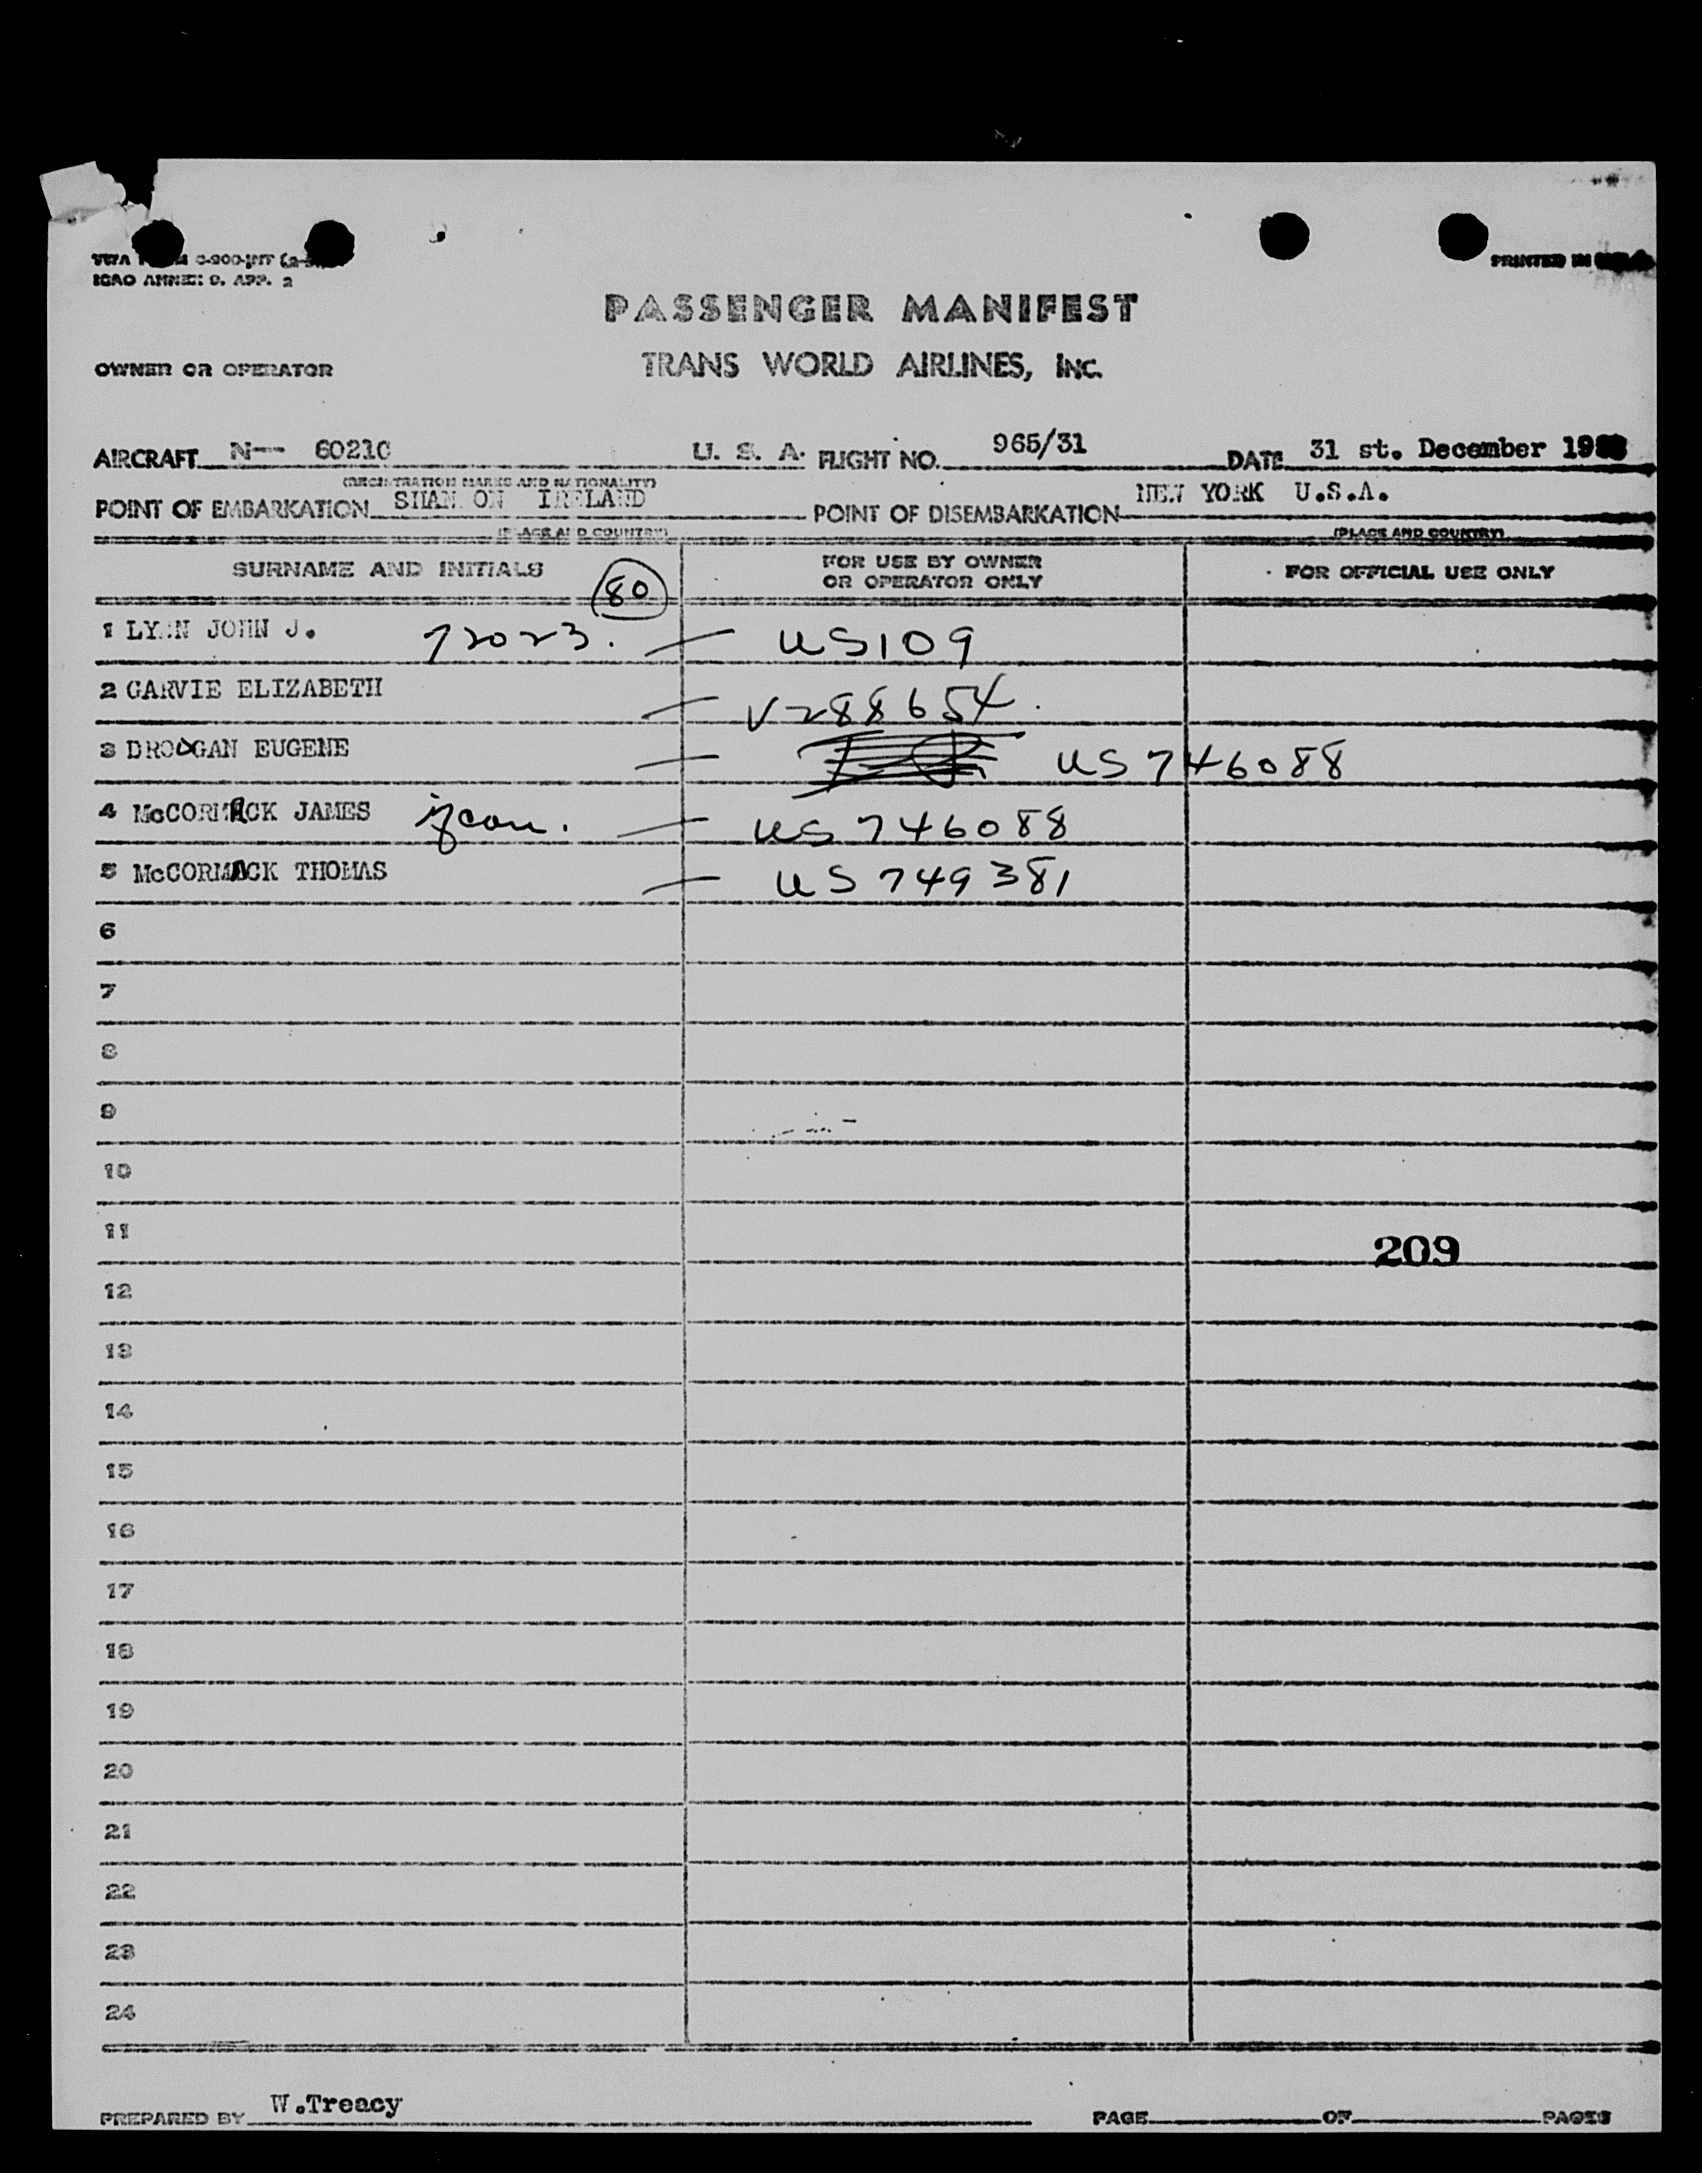 ICAO ANNEX 9. APP. 2
PRINTED IN
PASSENGER MANIFEST
OWNER OR OPERATOR
TRANS WORLD AIRLINES, INC.
AIRCRAFT N-- 6021C U. S. A. FLIGHT NO. 965/31 DATE 31 st. December
(REGISTRATION MARKS AND NATIONALITY)
POINT OF EMBARKATION SHANNON IRELAND POINT OF DISEMBARKATION NEW YORK U.S.A.
(PLACE AND COUNTRY) (PLACE AND COUNTRY)
SURNAME AND INITIALS 80 FOR USE BY OWNER OR OPERATOR ONLY FOR OFFICIAL USE ONLY
1 LYNN JOHN J. 72023. — US109
2 GARVIE ELIZABETH — V288654.
3 DROOGAN EUGENE — US 746088
4 McCORMACK JAMES — US 746088
5 McCORMACK THOMAS — US 749381
6
7
8
9
10
11
209
12
13
14
15
16
17
18
19
20
21
22
23
24
PREPARED BY W.Treacy PAGE OF PAGES